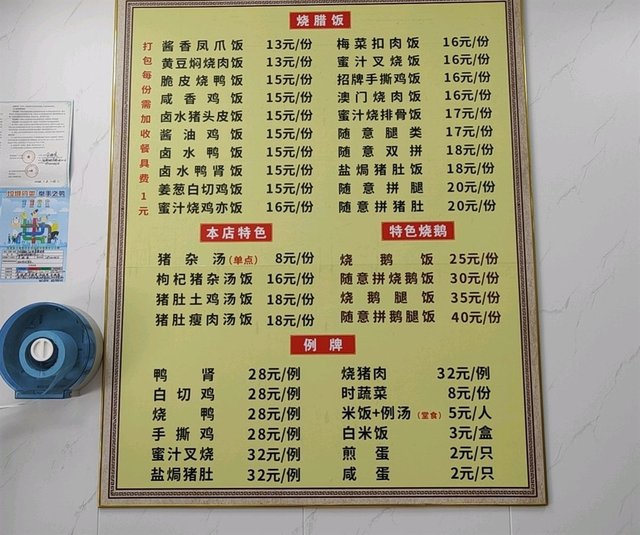 烧腊饭
打包每份需加收餐具费1元
酱香凤爪饭 13元/份
黄豆焖烧肉饭 13元/份
脆皮烧鸭饭 15元/份
咸香鸡饭 15元/份
卤水猪头皮饭 15元/份
酱油鸡饭 15元/份
卤水鸭饭 15元/份
卤水鸭肾饭 15元/份
姜葱白切鸡饭 15元/份
蜜汁烧鸡亦饭 16元/份
梅菜扣肉饭 16元/份
蜜汁叉烧饭 16元/份
招牌手撕鸡饭 16元/份
澳门烧肉饭 16元/份
蜜汁烧排骨饭 17元/份
随意腿类 17元/份
随意双拼 18元/份
盐焗猪肚饭 18元/份
随意拼腿 20元/份
随意拼猪肚 20元/份
本店特色
猪杂汤(单点) 8元/份
枸杞猪杂汤饭 16元/份
猪肚土鸡汤饭 18元/份
猪肚瘦肉汤饭 18元/份
特色烧鹅
烧鹅饭 25元/份
随意拼烧鹅饭 30元/份
烧鹅腿饭 35元/份
随意拼鹅腿饭 40元/份
例牌
鸭肾 28元/例
白切鸡 28元/例
烧鸭 28元/例
手撕鸡 28元/例
蜜汁叉烧 32元/例
盐焗猪肚 32元/例
烧猪肉 32元/例
时蔬菜 8元/份
米饭+例汤(堂食) 5元/人
白米饭 3元/盒
煎蛋 2元/只
咸蛋 2元/只